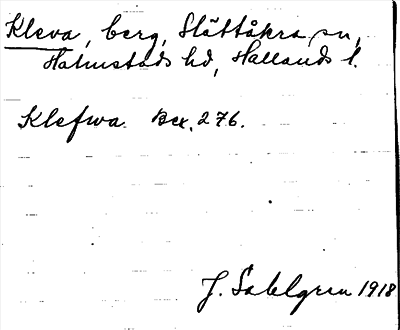 Kleva, berg, Slättåkra sn,
Halmstads hd, Hallands l.
Klefwa. Bex. 276.
J. Sahlgren 1918